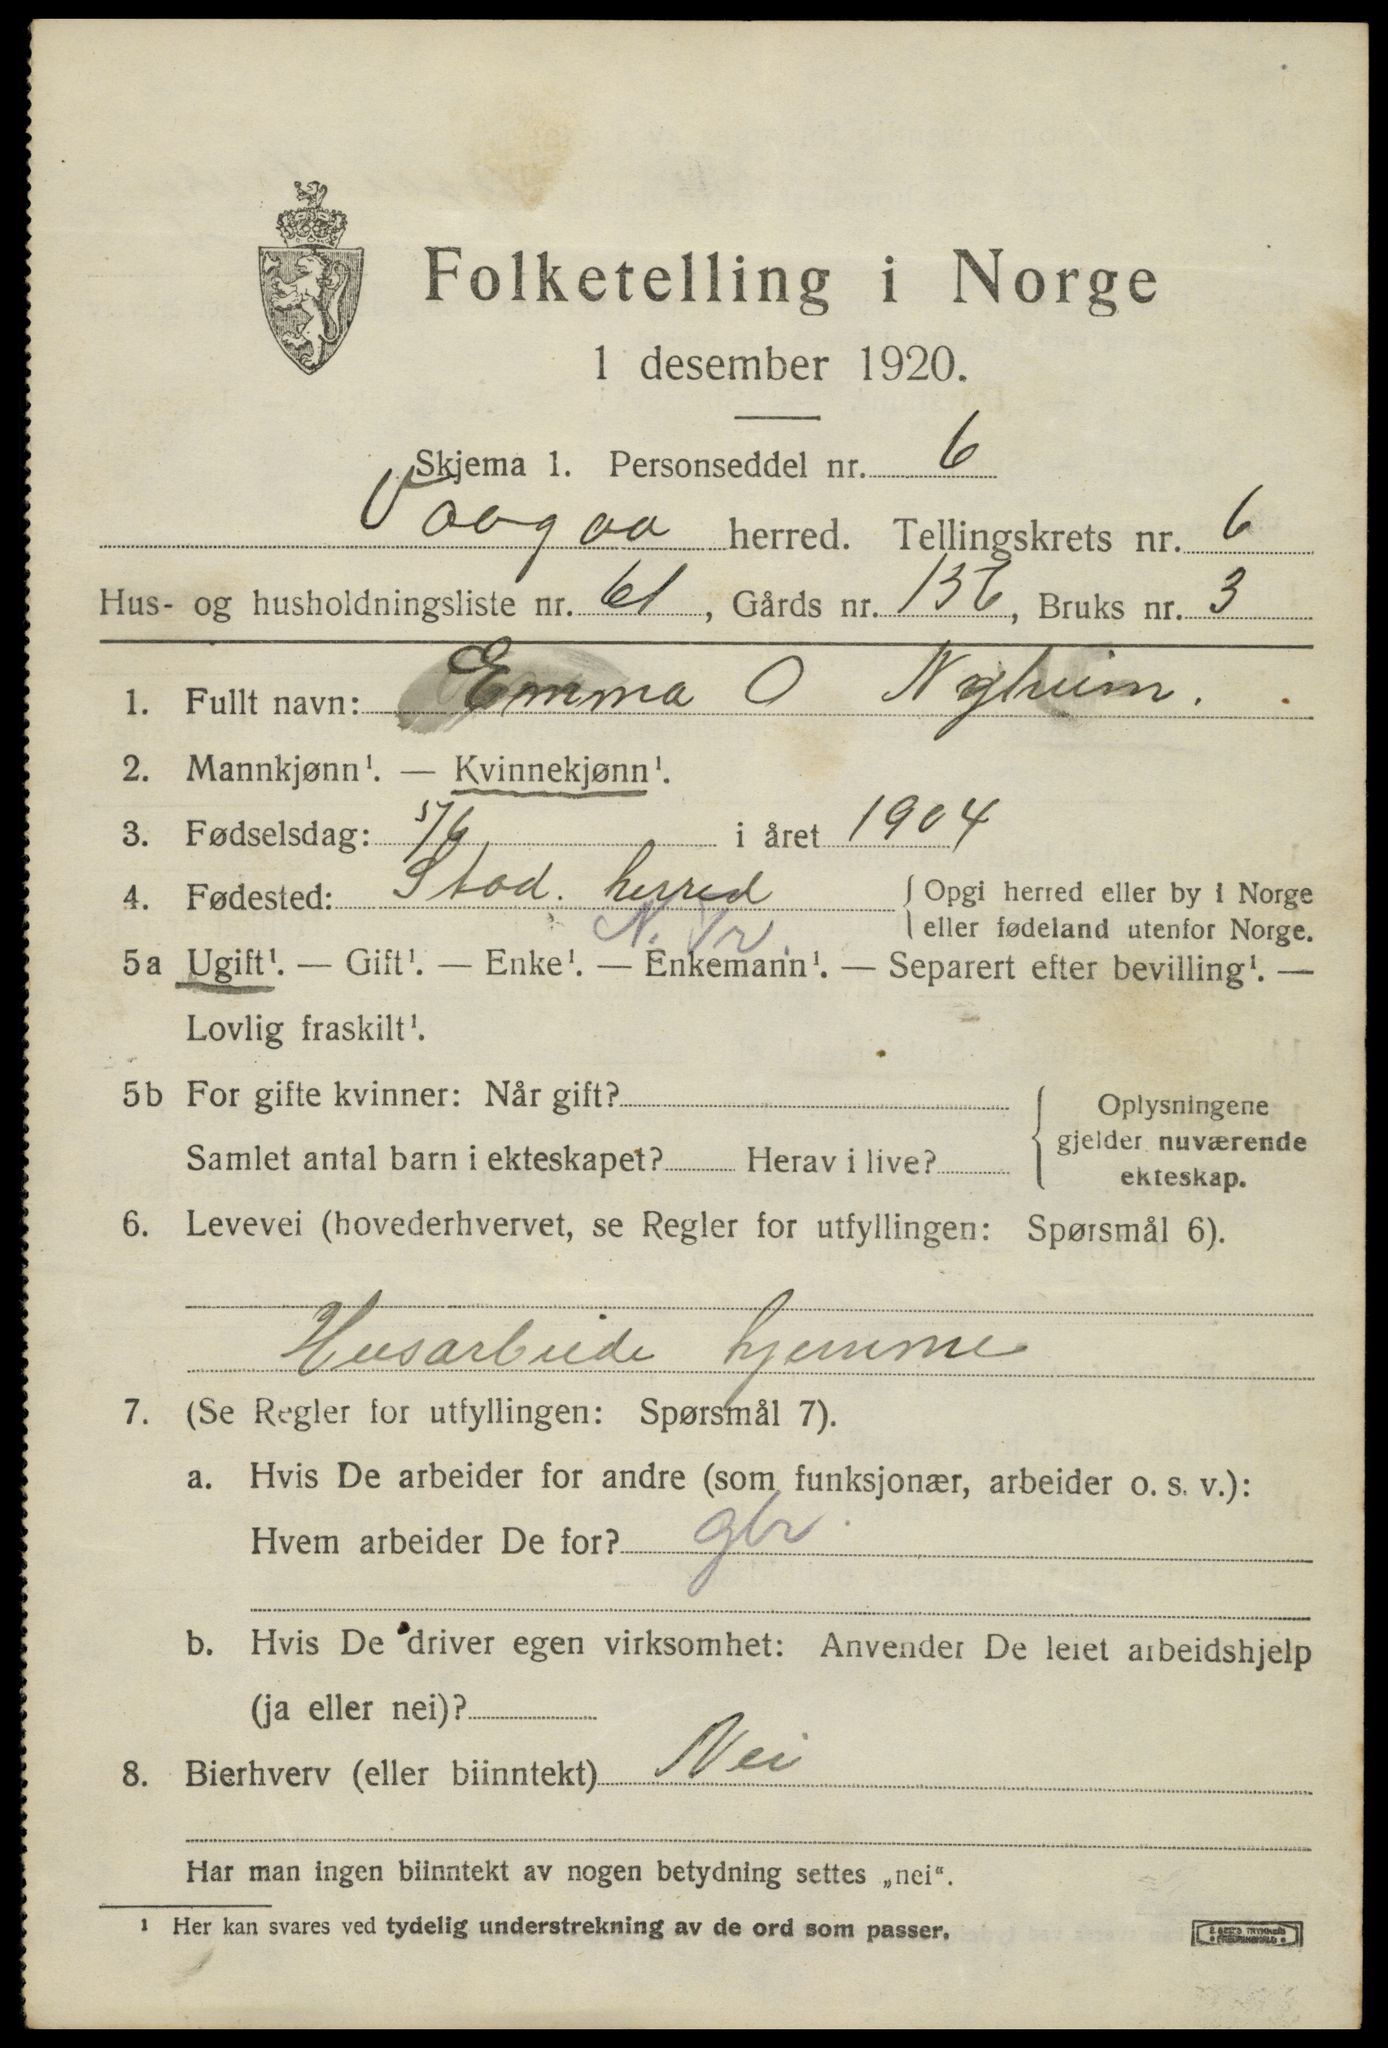 Folketelling i Norge
1 desember 1920.
Skjema 1. Personseddel nr. 6
Vaagaa herred. Tellingskrets nr. 6
Hus- og husholdningsliste nr. 61, Gårds nr. 136, Bruks nr. 3
1. Fullt navn: Emma O Nyheim.
2. Mannkjønn¹. — Kvinnekjønn¹.
3. Fødselsdag: 5/6 i året 1904
4. Fødested: Stod. herred { Opgi herred eller by i Norge
eller fødeland utenfor Norge.
N. Tr.
5a Ugift¹. — Gift¹. — Enke¹. — Enkemann¹. — Separert efter bevilling¹. —
Lovlig fraskilt¹.
5b For gifte kvinner: Når gift?
Samlet antal barn i ekteskapet? Herav i live?
Oplysningene
gjelder nuværende
ekteskap.
6. Levevei (hovederhvervet, se Regler for utfyllingen: Spørsmål 6).
Husarbeide hjemme
7. (Se Regler for utfyllingen: Spørsmål 7).
a. Hvis De arbeider for andre (som funksjonær, arbeider o. s. v.):
Hvem arbeider De for? gbr.
b. Hvis De driver egen virksomhet: Anvender De leiet arbeidshjelp
(ja eller nei)?
8. Bierhverv (eller biinntekt) Nei
Har man ingen biinntekt av nogen betydning settes „nei“.
¹ Her kan svares ved tydelig understrekning av de ord som passer.